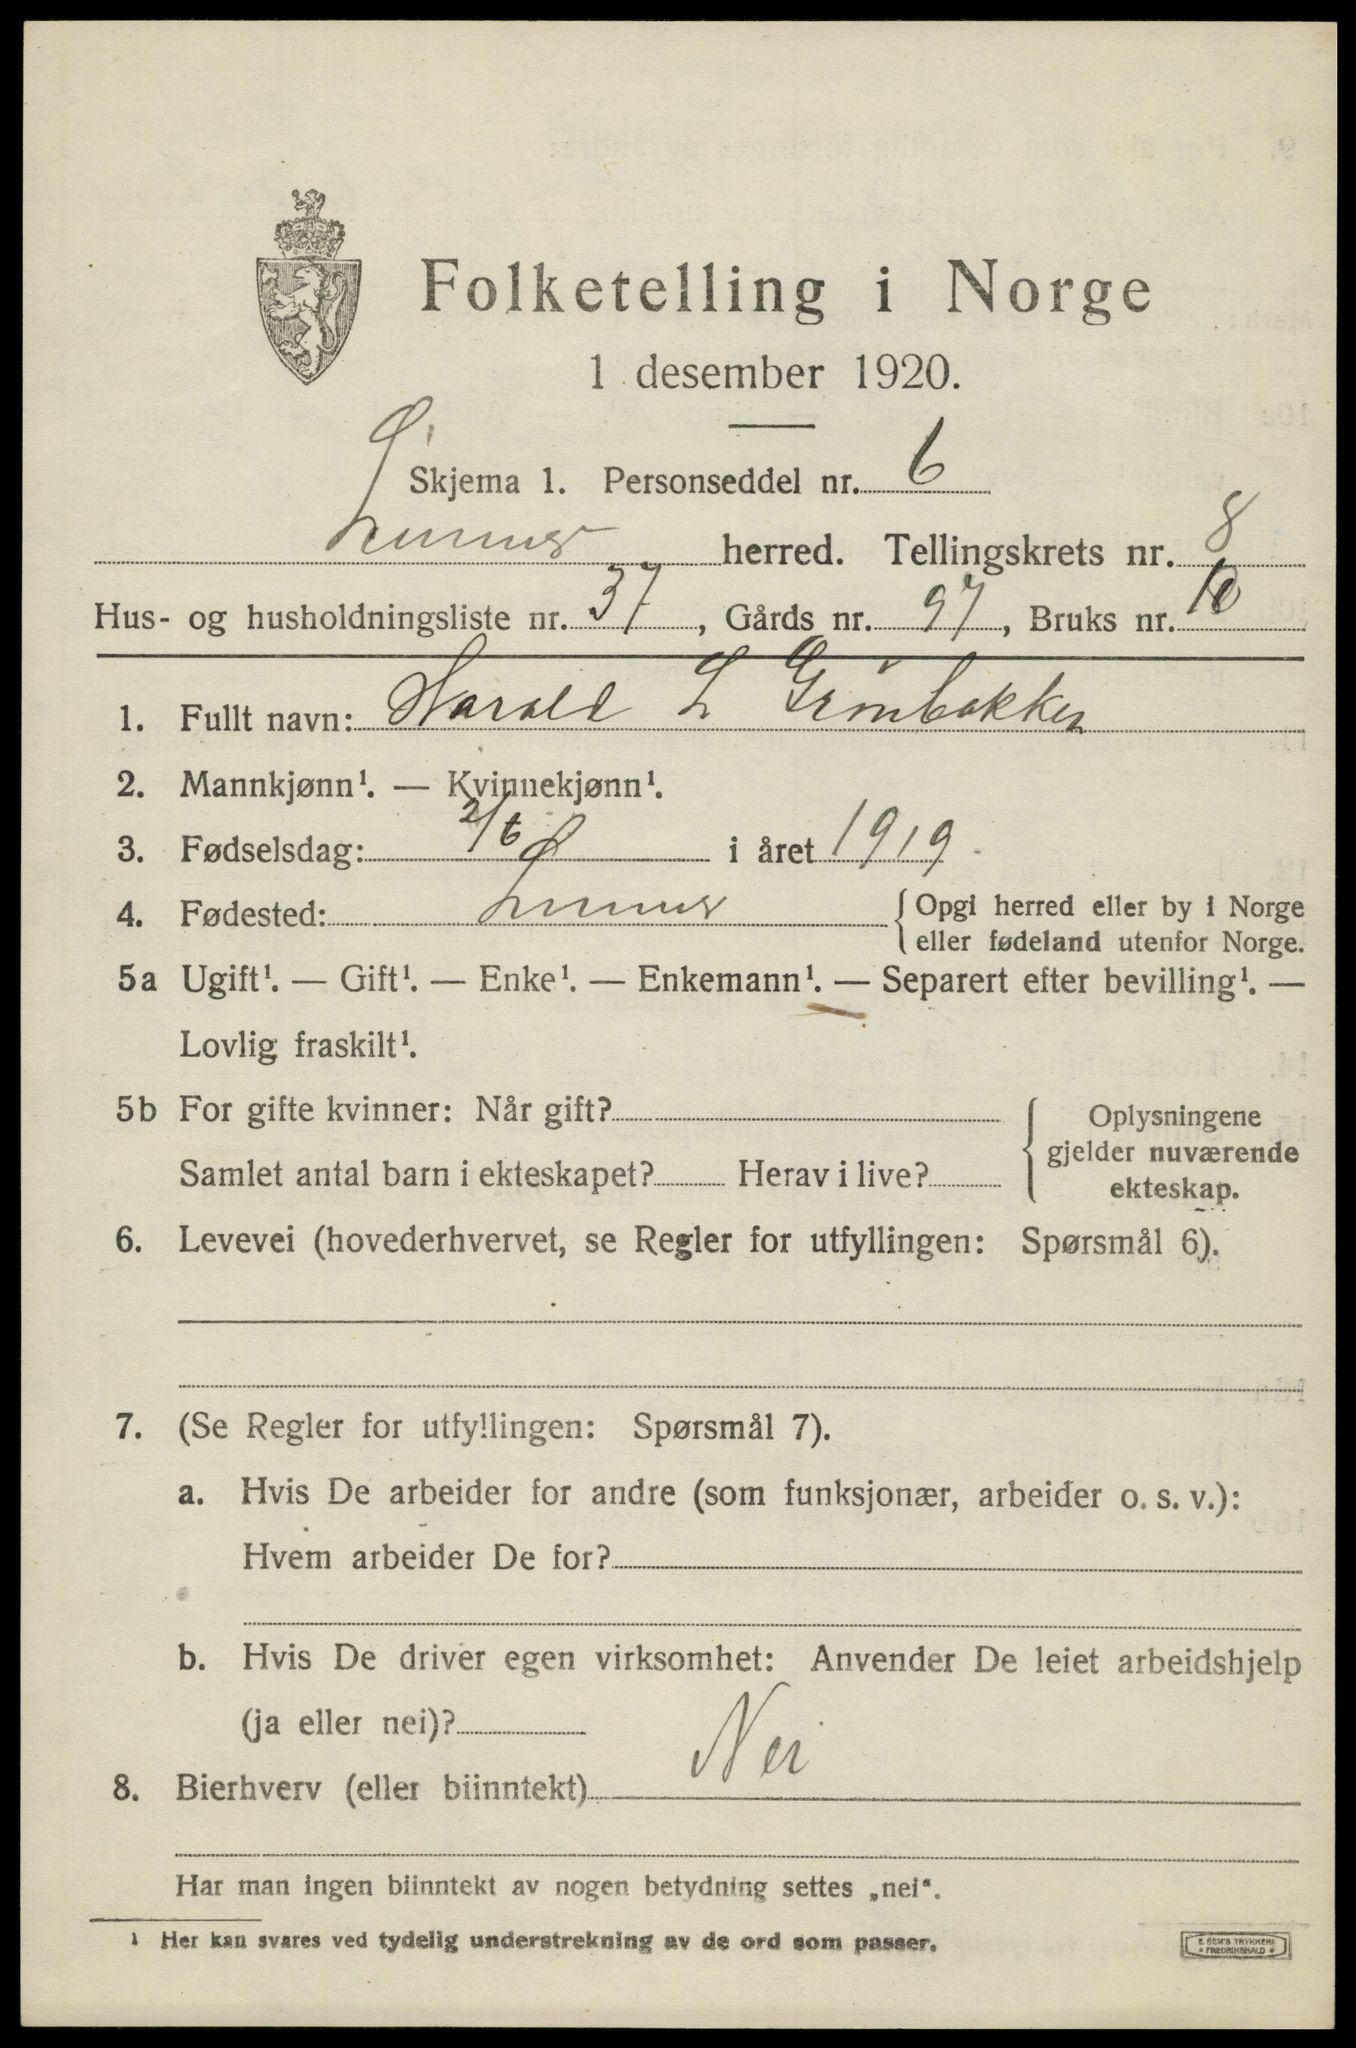 Folketelling i Norge
1 desember 1920.
Ø.
Skjema 1. Personseddel nr. 6
herred. Tellingskrets nr. 8
Hus- og husholdningsliste nr. 37, Gårds nr. 97, Bruks nr. 10
1. Fullt navn: Harald L Grønbakken
2. Mannkjønn¹. — Kvinnekjønn¹.
3. Fødselsdag: 2/6 i året 1919
4. Fødested: Ø
{ Opgi herred eller by i Norge
eller fødeland utenfor Norge.
5a Ugift¹. — Gift¹. — Enke¹. — Enkemann¹. — Separert efter bevilling¹. —
Lovlig fraskilt¹.
5b For gifte kvinner: Når gift?
Samlet antal barn i ekteskapet? Herav i live?
{ Oplysningene
gjelder nuværende
ekteskap.
6. Levevei (hovederhvervet, se Regler for utfyllingen: Spørsmål 6).
7. (Se Regler for utfyllingen: Spørsmål 7).
a. Hvis De arbeider for andre (som funksjonær, arbeider o. s. v.):
Hvem arbeider De for?
b. Hvis De driver egen virksomhet: Anvender De leiet arbeidshjelp
(ja eller nei)?
8. Bierhverv (eller biinntekt) Nei
Har man ingen biinntekt av nogen betydning settes „nei“.
¹ Her kan svares ved tydelig understrekning av de ord som passer.
E. SEM'S TRYKKERI
FREDRIKSHALD